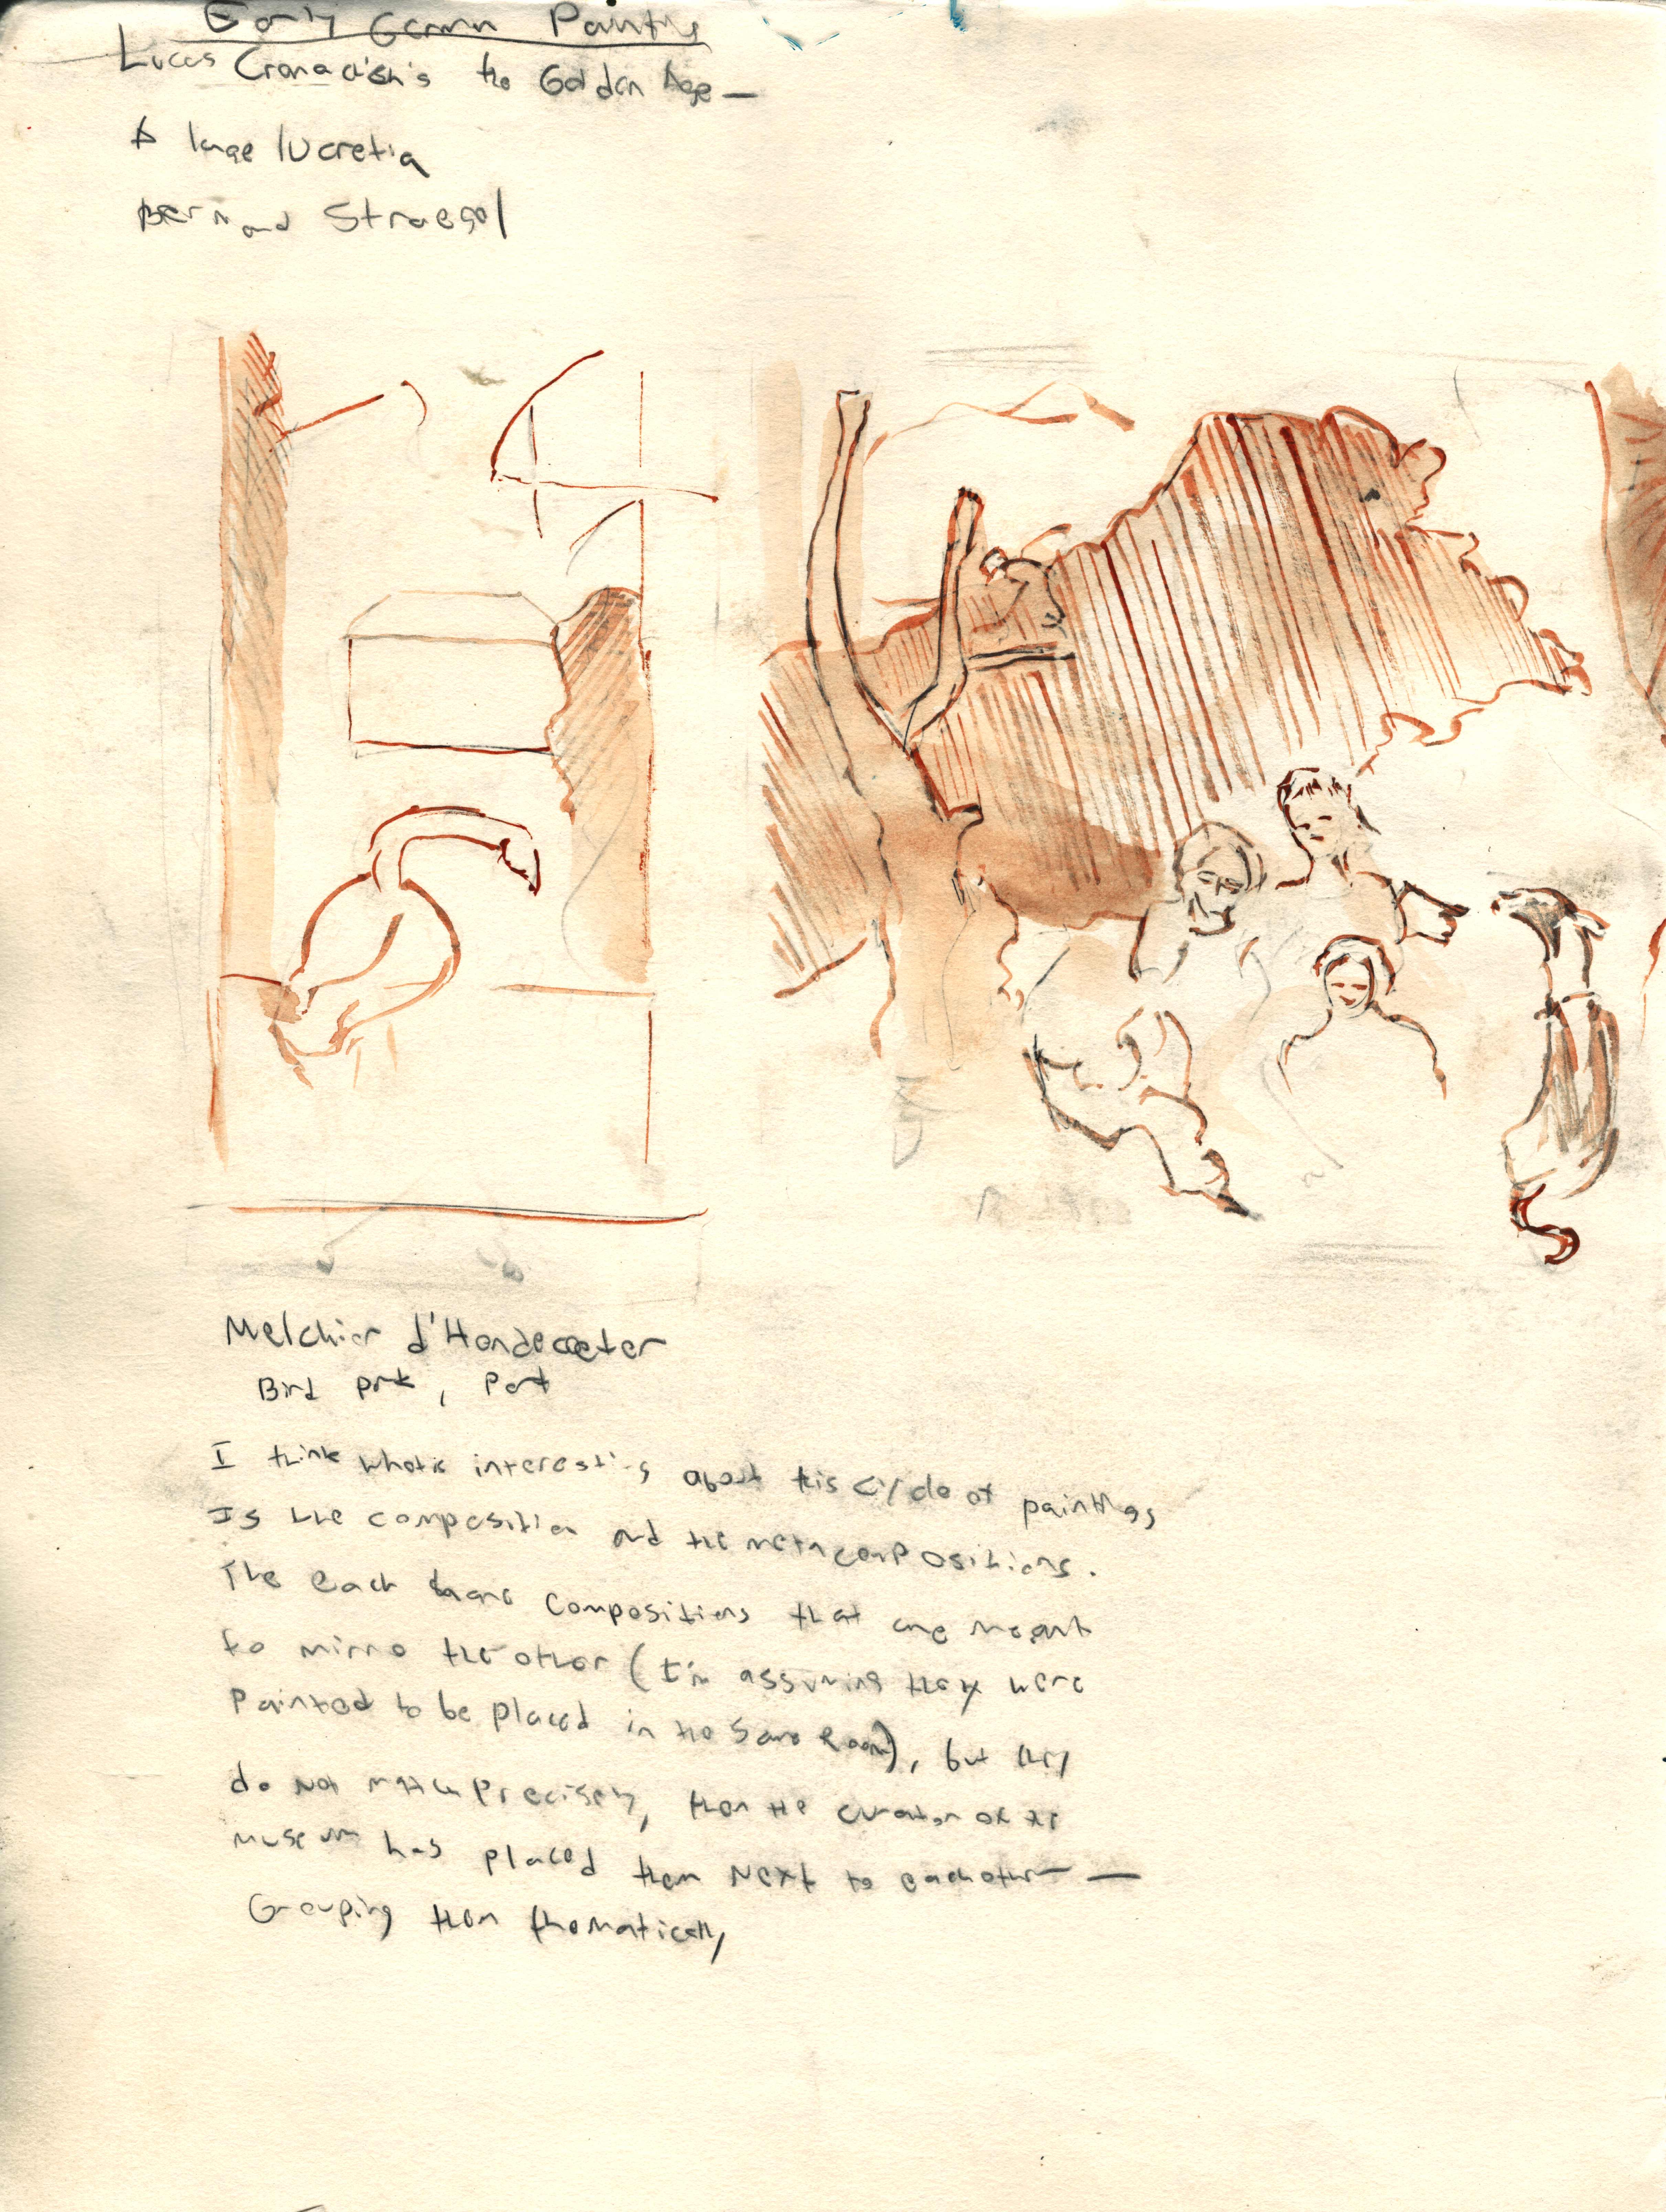 Early German Painting
Lucas Cranach's the Golden Age —
& large lucretia
Bernard Straegel
Melchior d'Hondecoeter
Bird park, Port
I think what is interesting about this Cycle of paintings
Is the composition and the metacompositions.
The each have compositions that are meant
to mirro the other (I'm assuming they were
Painted to be placed in the Same Room), but they
do not match Precisely, then the curator of the
museum has placed them Next to each other —
Grouping them thematically